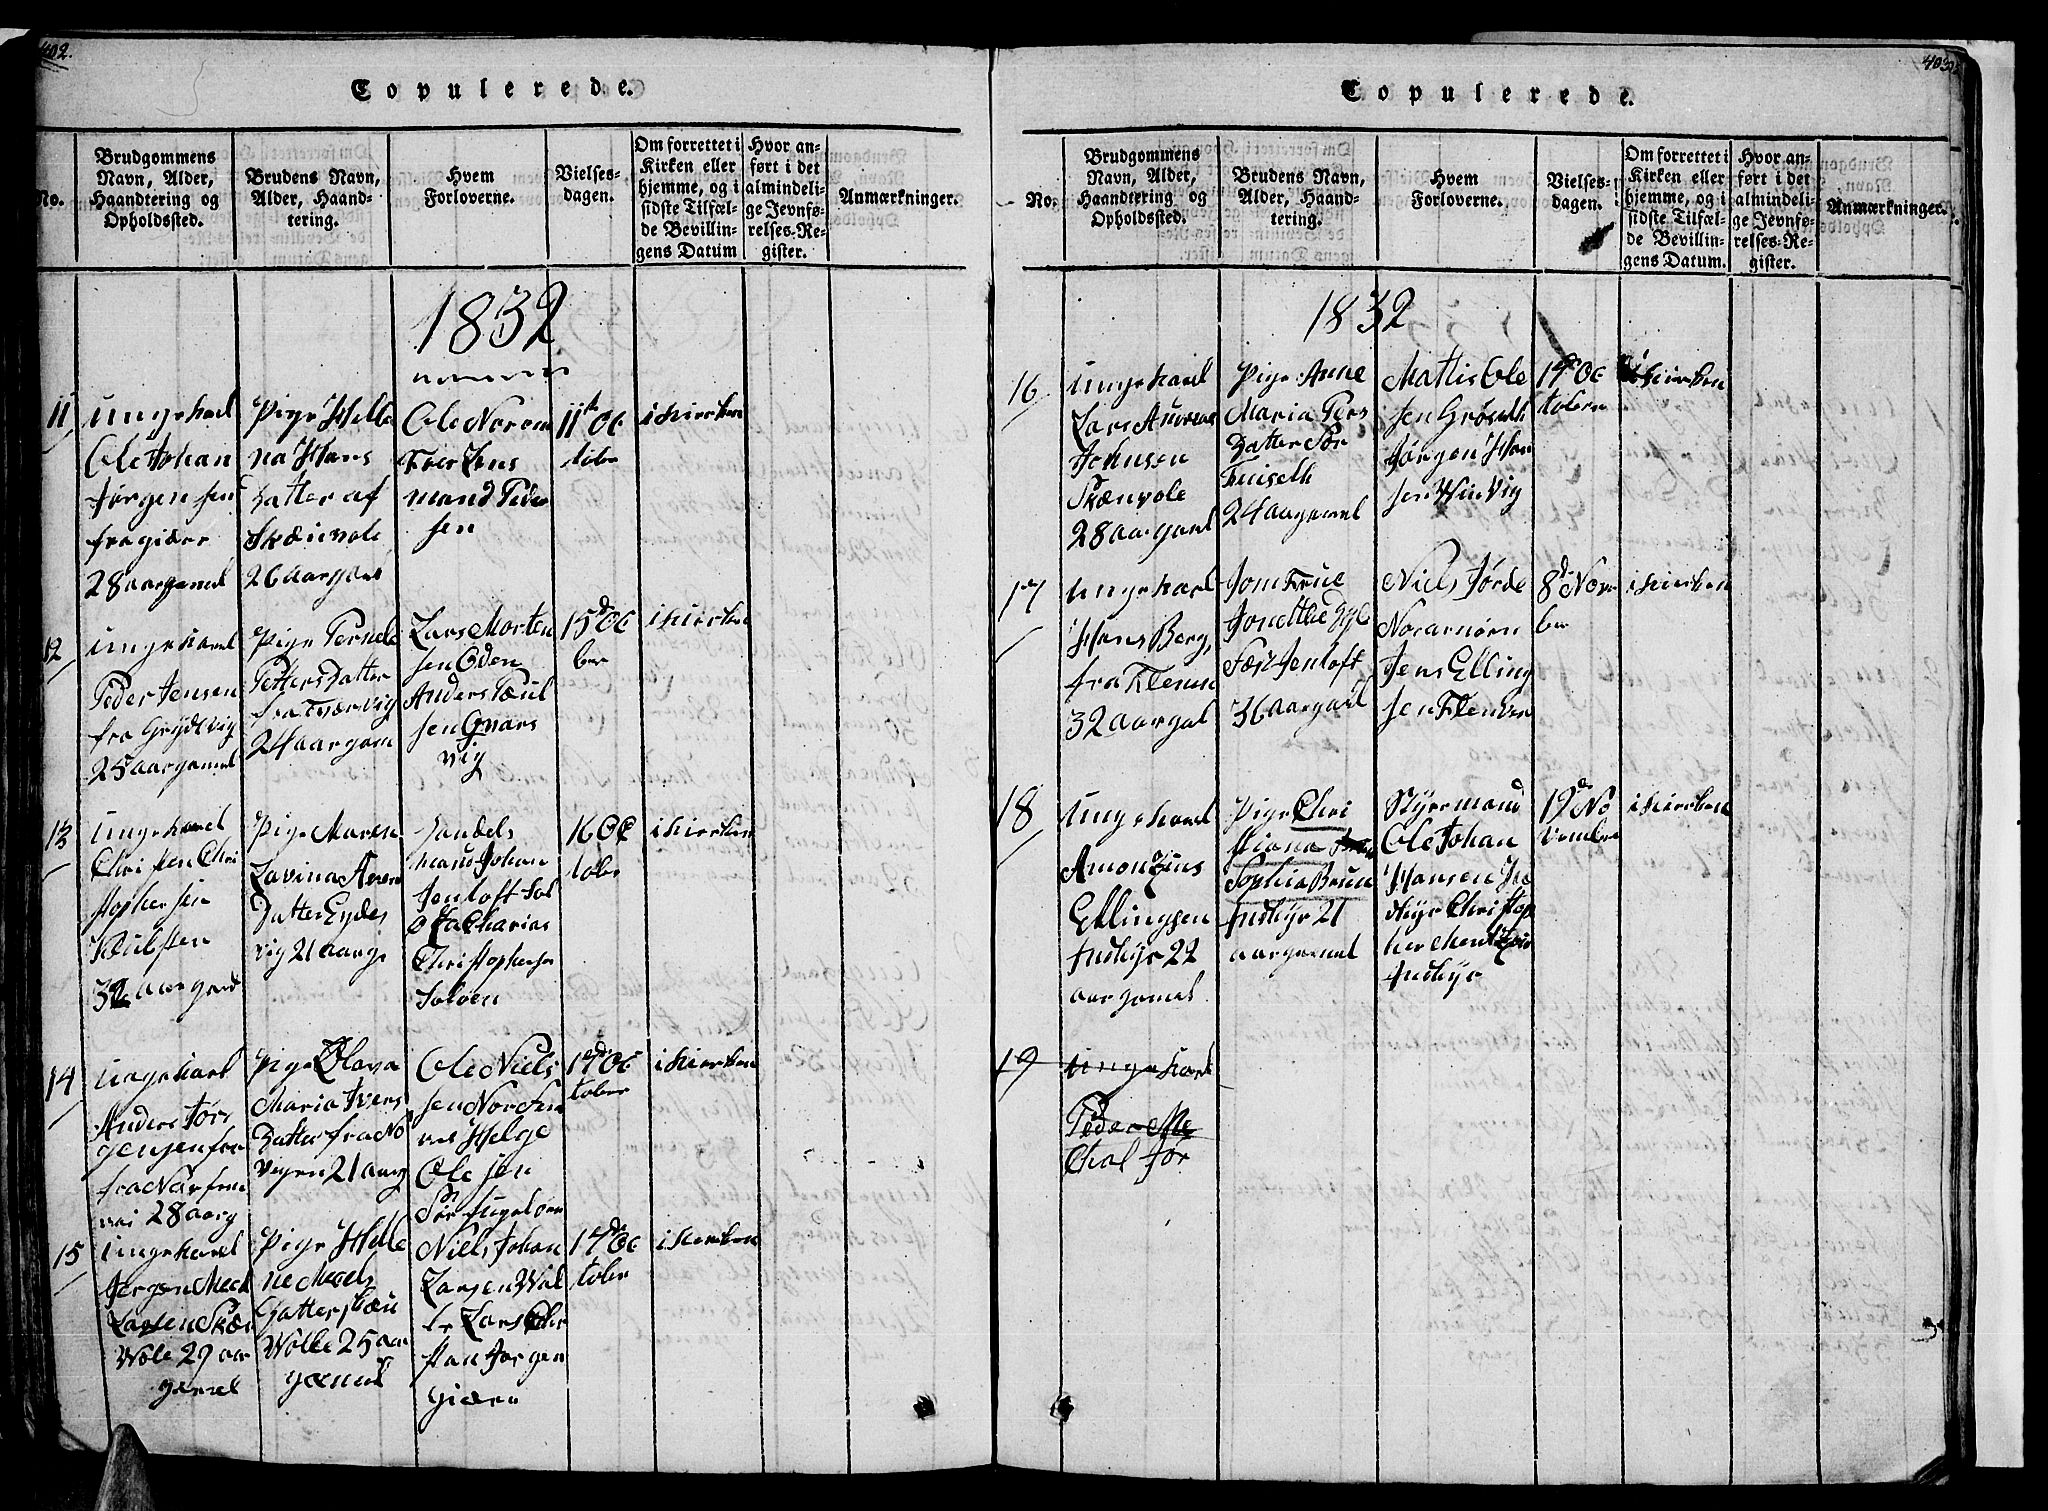 402.
Copulerede.
No.
Brudgommens
Navn, Alder,
Haandtering og
Opholdssted.
Brudens Navn,
Alder, Haand-
tering.
Hvem
Forloverne.
Vielses-
dagen.
Om forrettet i
Kirken eller
hjemme, og i
sidste Tilfæl-
de Bevillin-
gens Datum
Hvor an-
ført i det
almindeli-
ge Jevnfø-
relses-Re-
gister.
Anmærkninger.
1832
11
ungekarl
Ole Johan
Jørgensen
fra giær
28 aar gamel
Pige Helle
na Hans
Datter af
Skænvole
26 aar gam
Ole
Lens
mand Peder
sen
11te Oc
tober
i kierken
12
ungekarl
Peder Jensen
fra Grydtvig
25 aar gamel
Pige Pernele
Petters Datter
fra Tværvig
24 aar gam
Lars Morten
sen Oden
Anders Poul
sen Qvars
vig
15d Oc
ber
i kierken
13
ungekarl
Christen Chri
stophersen
32 aar gaml
Pige Maren
Lavina Aren
Datter Eydes
vig 21 aar g
Handels
mand Johan
Jentoft Sol
Zacharias
Christophersen
Soløen
16 Oc
tober
i kierken
14
ungekarl
Anders Jør
gensen fra
fra Norfen
vei 28 aar g
Pige Olava
Maria Ivers
Datter fra No
21 aar g
Ole Niels
sen Norfen
vei Helge
Olesen
17d Oc
tober
i kierken
15
ungekarl
Jørgen Meck
Larsen Skæn
Wole 29 aar
gamel
Pige Helle
ne Mecels
Datter skæn
Wolle 25 aar
gamel
Niels Johan
Larsen Wol
Lars Chri
stan Jørgen
giæren
17d Oc
tober
i kierken
403
Copulerede.
No.
Brudgommens
Navn, Alder,
Haandtering og
Opholdssted.
Brudens Navn,
Alder, Haand-
tering.
Hvem
Forloverne.
Vielses-
dagen.
Om forrettet i
Kirken eller
hjemme, og i
sidste Tilfæl-
de Bevillin-
gens Datum.
Hvor an-
ført i det
almindeli-
ge Jevnfø-
relses-Re-
gister.
Anmærkninger.
1832
16
ungekarl
Lars Andreas
Johnsen
Skænvole
28 aar gaml
Pige Anne
Maria Pers
Datter Sør
24 aar gamel
Mattis Ole
sen Grøseth
Jørgen Han
sen Winvig
19d Oc
tober
i kierken
17
ungekarl
Hans Berg
fra Flensen
32 aar gal
Jomfrue
Jenthoft
36 aar gaml
Niels Jørde
Jens Elling
sen
8d Nov
ber
i kierken
18
ungekarl
Amon Zius
Ellingsen
Indhyr 22
aar gamel
Pige Chri
stiana
Sophia Brun
Indhyr 21
aar gamel
Styrmand
Ole Johan
Hansen In
dhyr Christop
her
Indhyr
19de No
vember
i kierken
19
ungekarl
Peder Me
chal Jør